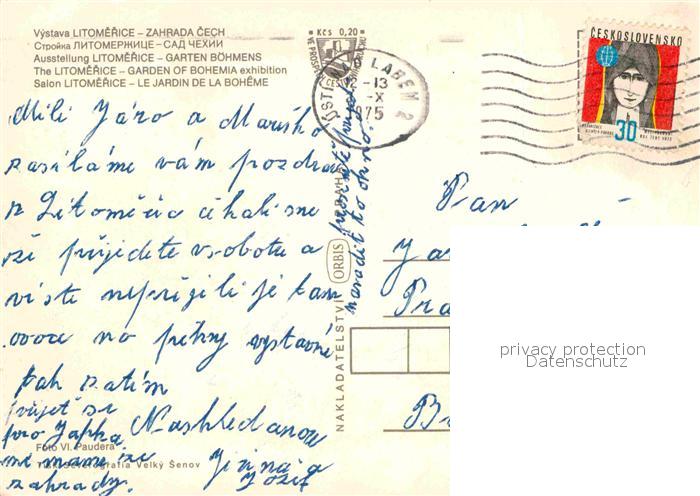 Výstava LITOMĚŘICE – ZAHRADA ČECH
Стройка ЛИТОМЕРНИЦЕ – САД ЧЕХИИ
Ausstellung LITOMĚŘICE – GARTEN BÖHMENS
The LITOMĚŘICE – GARDEN OF BOHEMIA exhibition
Salon LITOMĚŘICE – LE JARDIN DE LA BOHÊME
Kčs 0,20
ÚSTÍ NAD LABEM 2
-13
-X
75
ČESKOSLOVENSKO
30
Milí Járo a Maruško
zasíláme vám pozdrav
z Litoměřic čekali sme
že přijedete v sobotu a
víste nepřijeli je tam
ovoce na pěkny vystavě
tak zatím
přijet si
pro Japka
Nashledanou
mi mame ze
zahrady.
Jiřina a
Jozef
navadit to okno.
Pan
Pra
NAKLADATELSTVÍ ORBIS PRAHA
Foto Vl. Paudera
Velký Šenov
privacy protection
Datenschutz